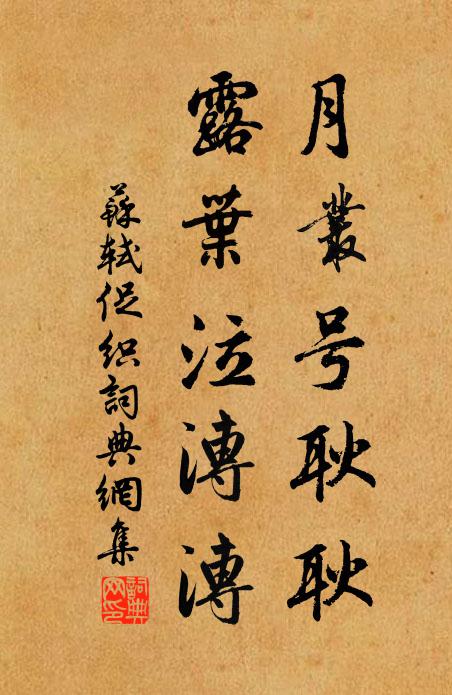 月叢号耿耿
露葉泣漙漙
蘇軾促织詞典網集
詞典网印